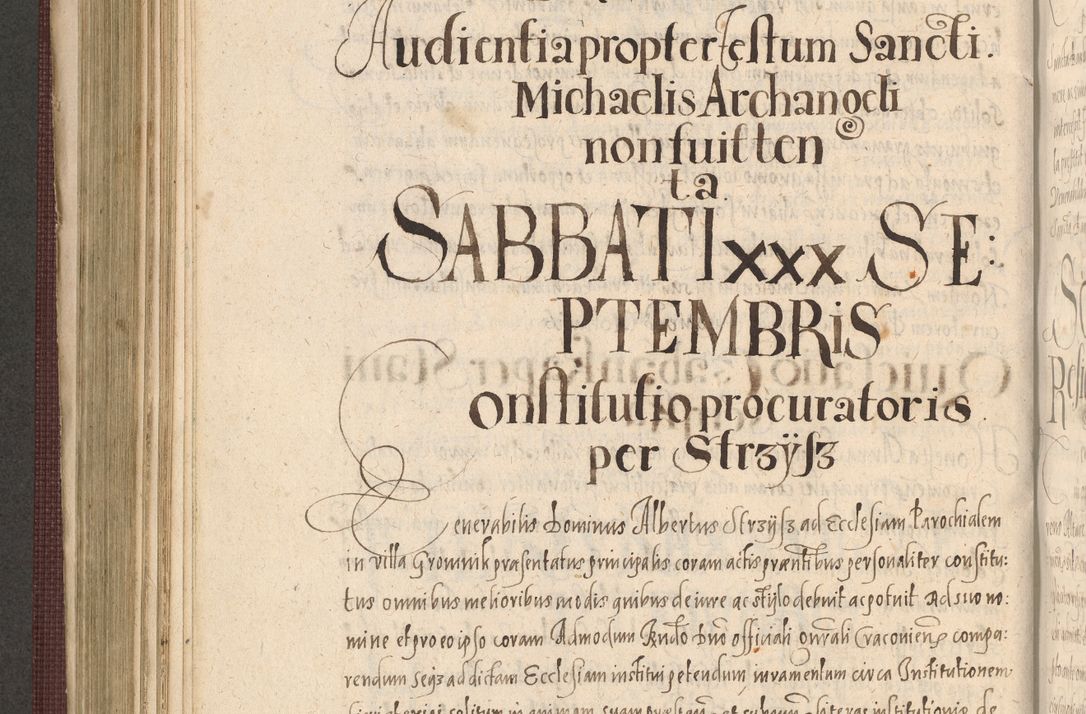 Audientia propter festum Sancti
Michaelis Archangeli
non fuit ten
ta
SABBATI xxx SE:
PTEMBRIS
Constitutio procuratoris
per Strzÿsz
Venerabilis Dominus Albertus Strzÿsz ad Ecclesiam Parochialem
in villa Gromnik præsentatus principalis coram actis præntibus personaliter constitu:
tus omnibus melioribus modis quibus de iure ac stÿlo debuit ac potuit ad suo no:
mine et pro eo ipso coram Admodum Rndo Dno officiali gnrali Cracovien compa:
rendum seqz ad dictam Ecclesiam institui petendum, iuramentum circa Institutionem
solitum in animam suam et literas institutionis de